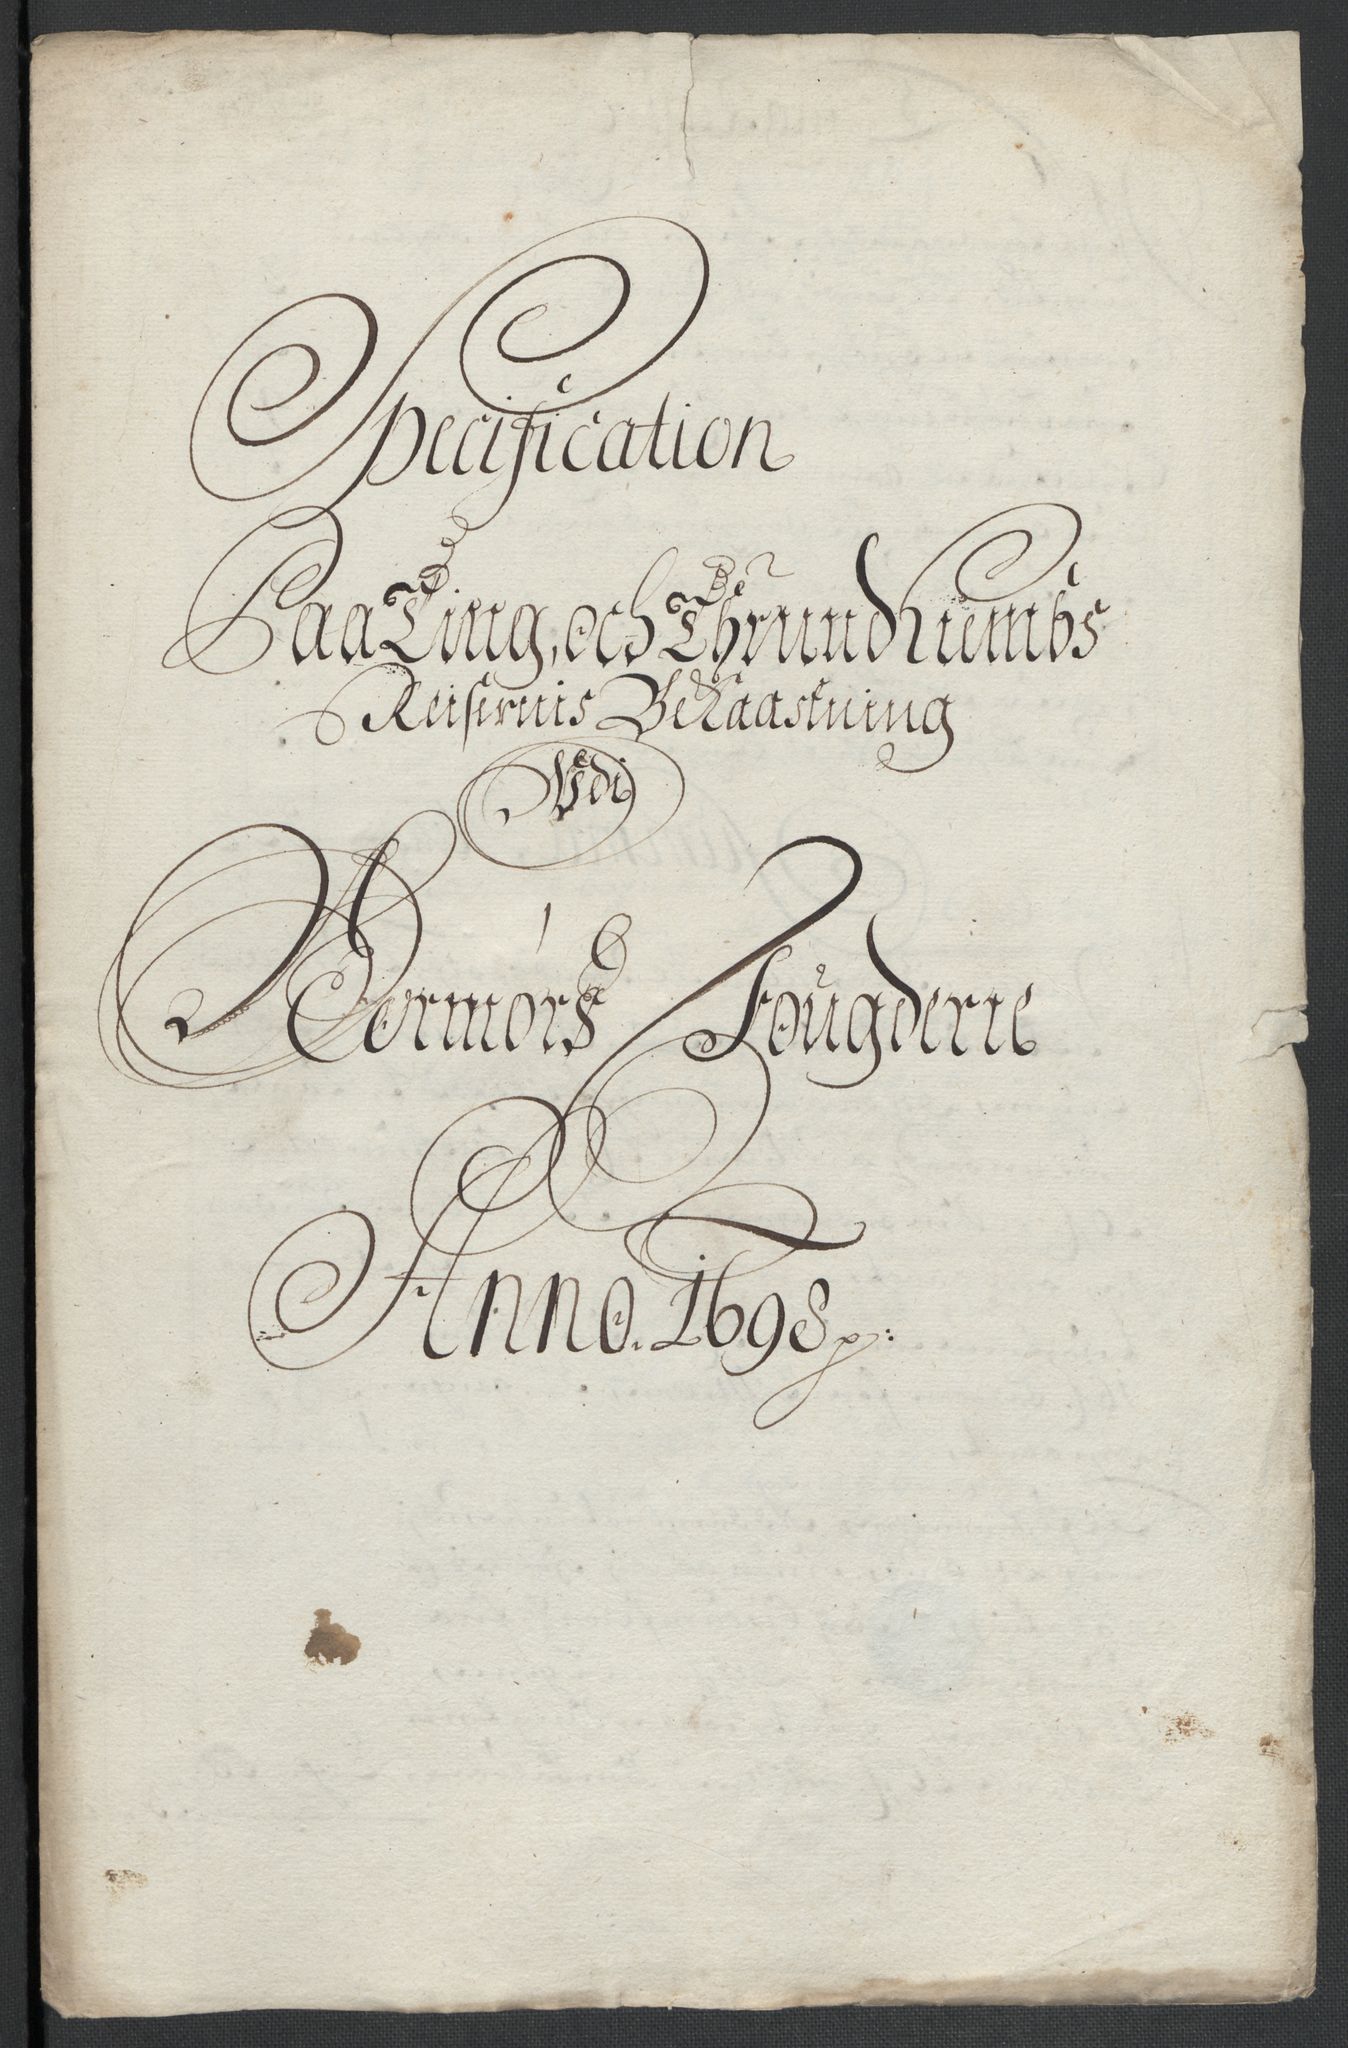 Specification
Paa Ting, och Thrundhiembs
Reisernis Bekaastning
Vdi
Rormörs Fougderie
Anno. 1698